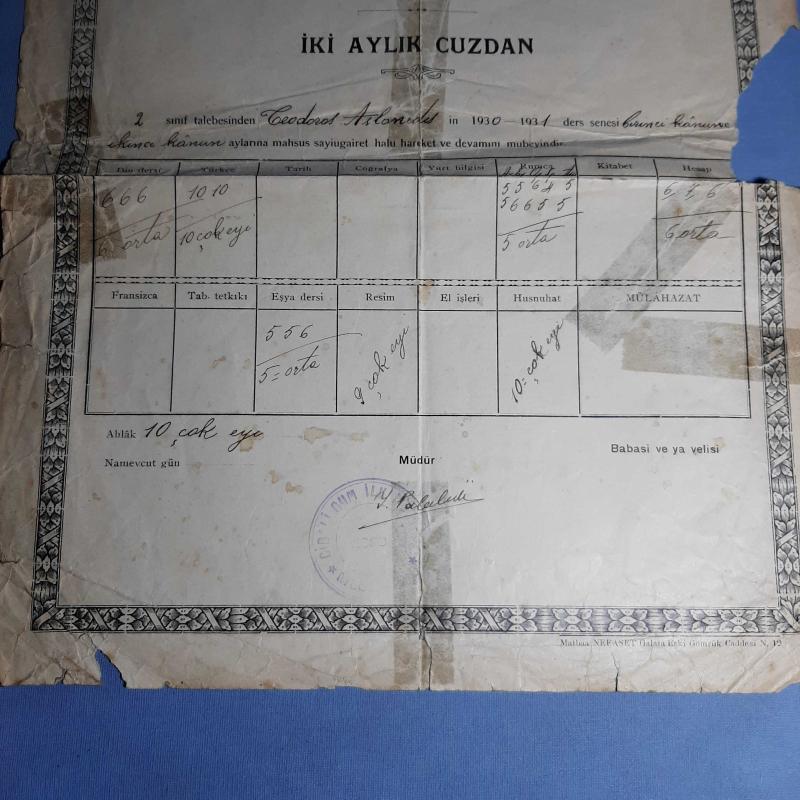 İKİ AYLIK CUZDAN
2 sınıf talebesinden Teodoros in 1930-1931 ders senesi birinci kânunu
ikinci kânun aylarına mahsus sayiugairet halu hareket ve devamını mubeyindir
Din dersi Türkçe Tarih Coğrafya Yurt bilgisi Rumca Kitabet Hesap
6 6 6 10 10 5 5 6 4 5
5 6 6 5 5
6 orta 10 çok eyi 5 orta 6 orta
Fransizca Tab. tetkıkı Eşya dersi Resim El işleri Husnuhat MÜLÂHAZAT
5 5 6
5 = orta 9 çok eyi 10 = çok eyi
Ahlâk 10 çok eyi
Namevcut gün Müdür Babasi ve ya velisi
CİBALİ RUM
Matbaa NEFASET Galata Eski Gömrük Caddesi N. 12